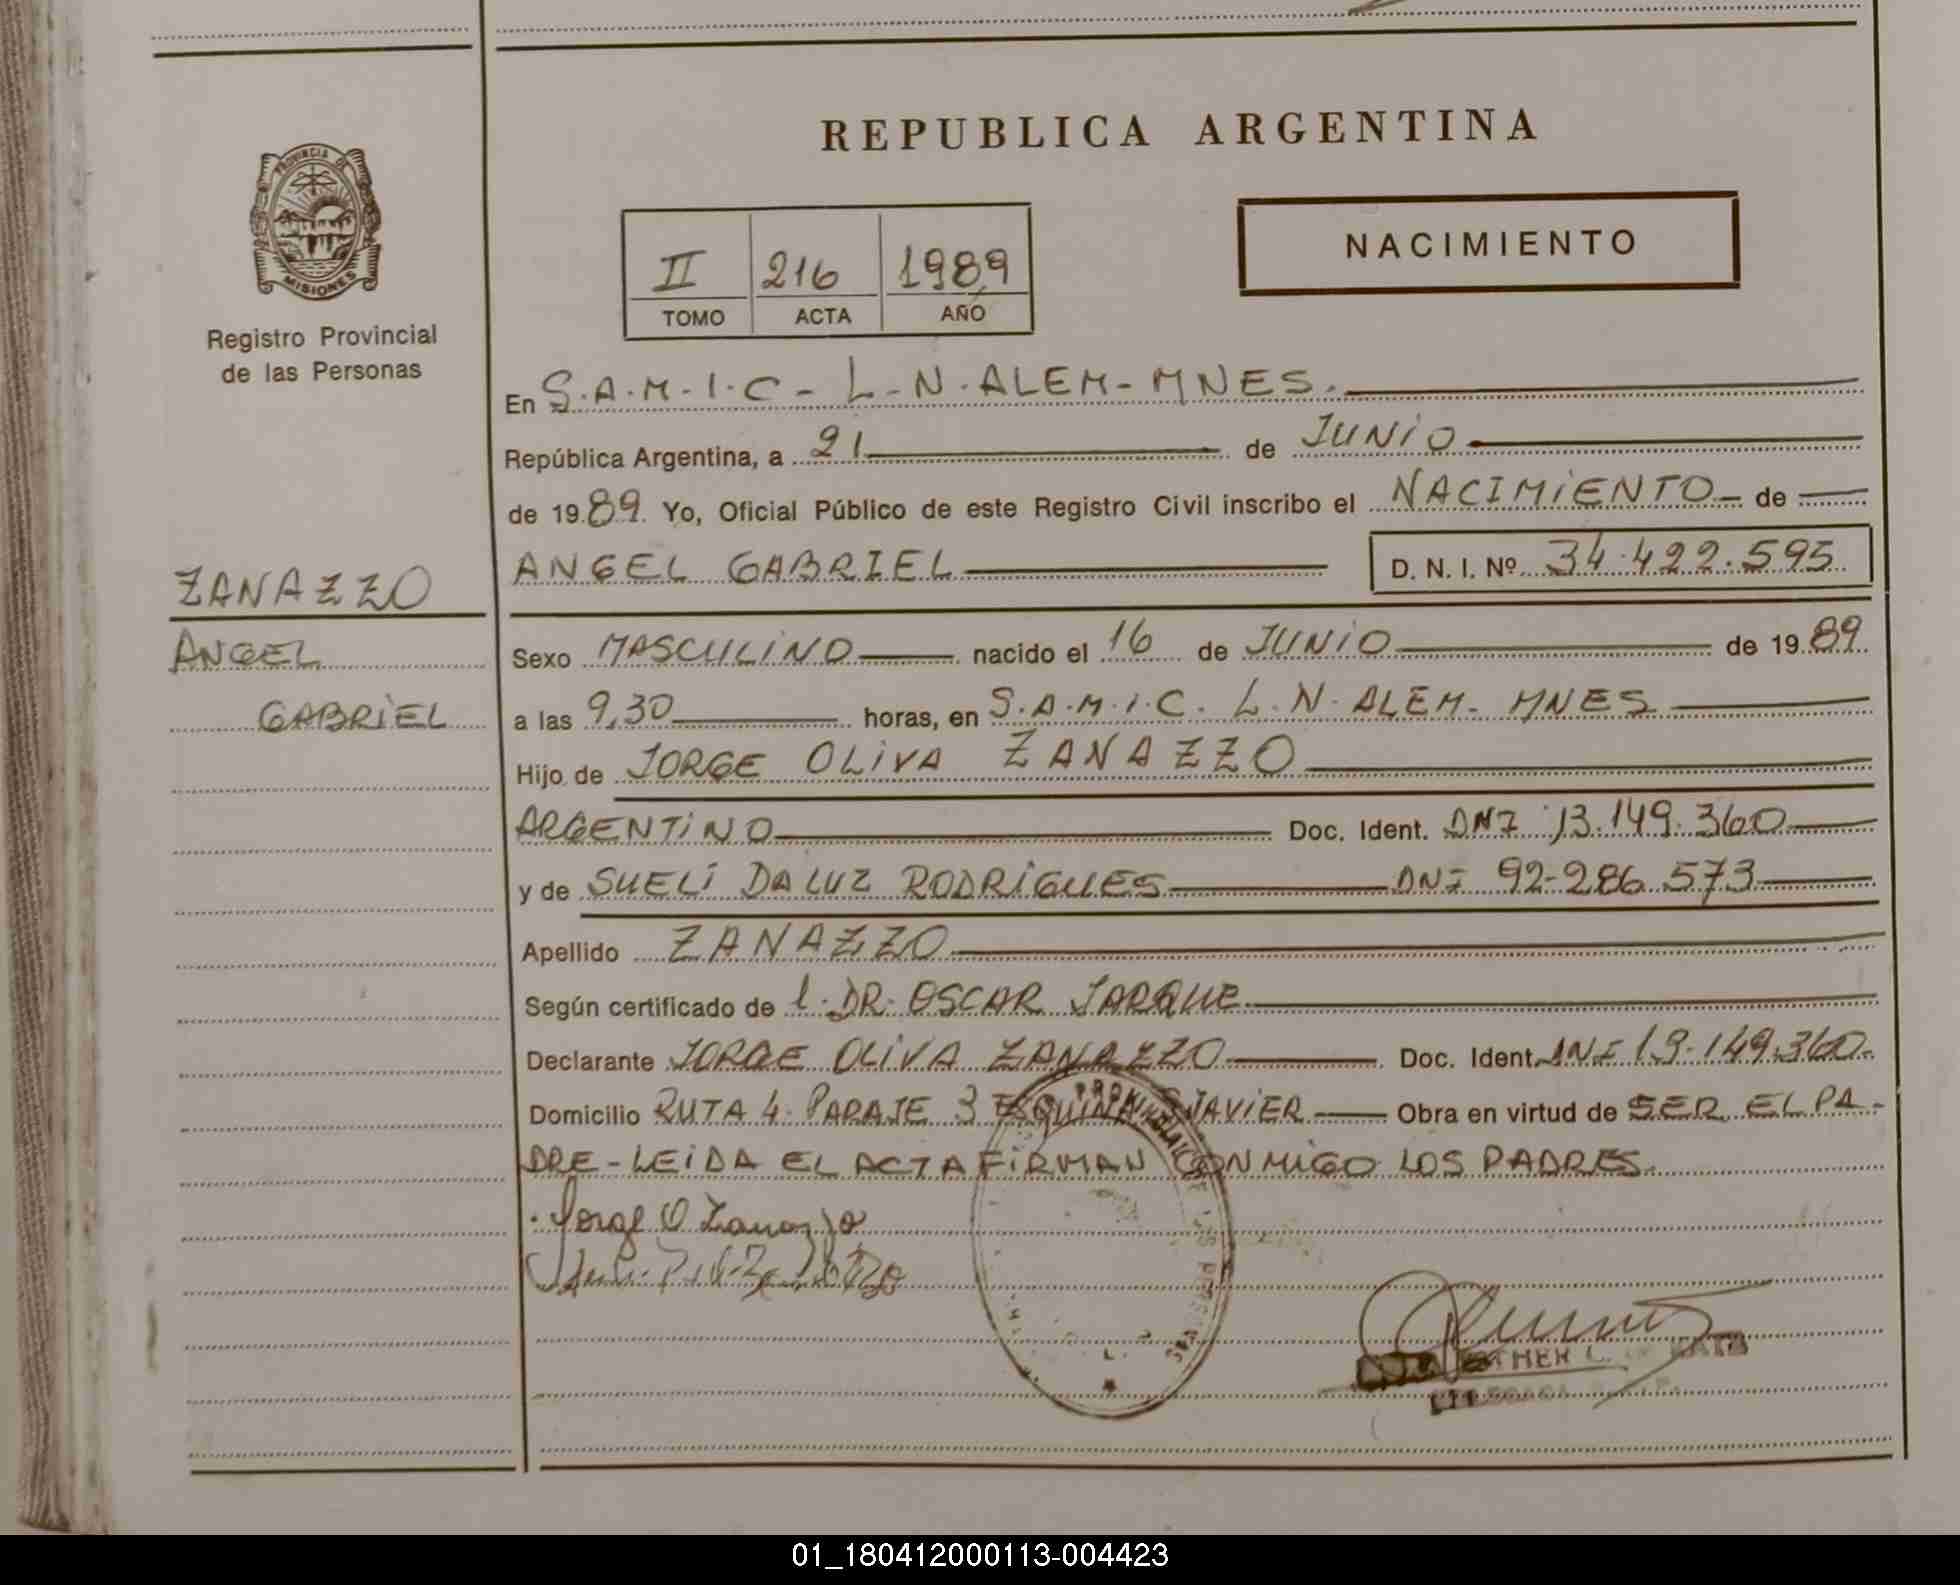 REPUBLICA ARGENTINA
PROVINCIA DE
MISIONES
Registro Provincial
de las Personas
NACIMIENTO
II 216 1989
TOMO ACTA AÑO
En S.A.M.I.C - L-N-ALEM-MNES.
República Argentina, a 21 de JUNIO
de 1989 Yo, Oficial Público de este Registro Civil inscribo el NACIMIENTO de
ANGEL GABRIEL D. N. I. Nº 34.422.595
ZANAZZO
ANGEL
GABRIEL
Sexo MASCULINO nacido el 16 de JUNIO de 1989
a las 9,30 horas, en S.A.M.I.C. L.N. ALEM- MNES
Hijo de JORGE OLIVA ZANAZZO
ARGENTINO Doc. Ident. DNI 13.149.360
y de SUELI DA LUZ RODRIGUES DNI 92-286.573
Apellido ZANAZZO
Según certificado de l. DR. OSCAR JARQUE
Declarante JORGE OLIVA ZANAZZO Doc. Ident. DNI 13.149.360-
Domicilio RUTA 4. PARAJE 3 ESQUINA S JAVIER Obra en virtud de SER EL PA-
DRE-LEIDA EL ACTA FIRMAN CONMIGO LOS PADRES.
Jorge O Zanazzo
01_180412000113-004423